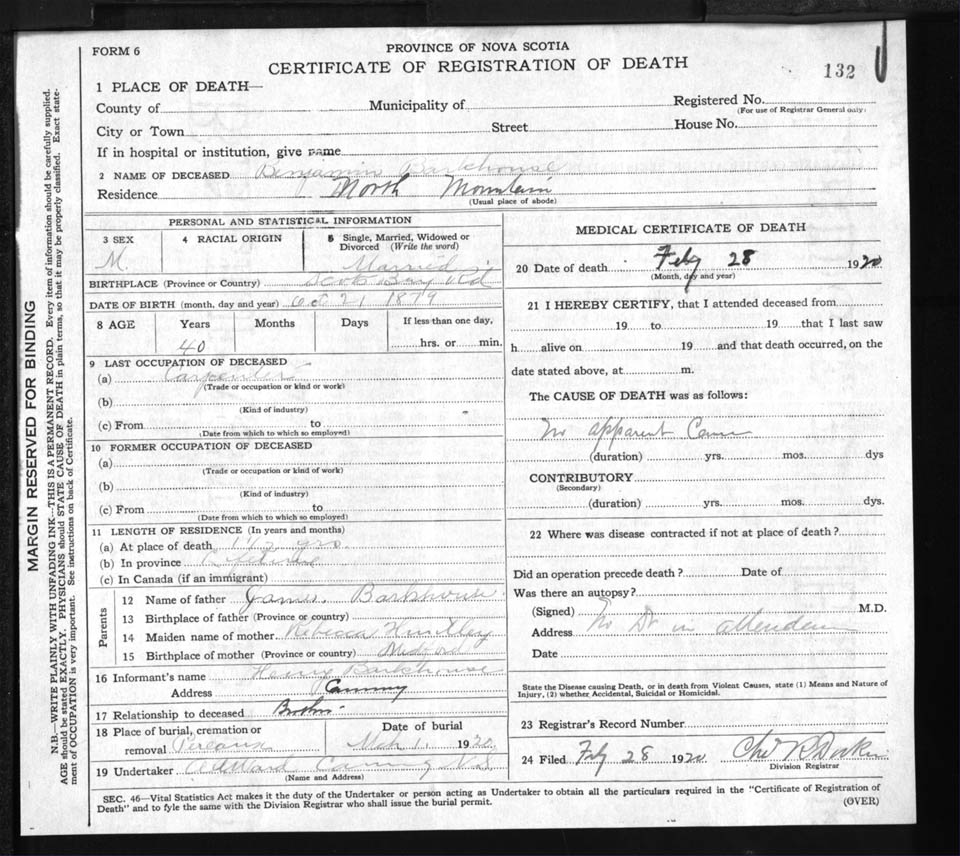 FORM 6
PROVINCE OF NOVA SCOTIA
CERTIFICATE OF REGISTRATION OF DEATH
132
1 PLACE OF DEATH—
County of Municipality of Registered No.
(For use of Registrar General only)
City or Town Street House No.
If in hospital or institution, give name
2 NAME OF DECEASED Benjamin Barkhouse
Residence North Mountain
(Usual place of abode)
PERSONAL AND STATISTICAL INFORMATION
3 SEX 4 RACIAL ORIGIN 5 Single, Married, Widowed or Divorced (Write the word)
M. Married
BIRTHPLACE (Province or Country) Scots Bay Rd
DATE OF BIRTH (month, day and year) Oct 21 1879
8 AGE Years Months Days If less than one day,
40 hrs. or min.
9 LAST OCCUPATION OF DECEASED
(a) Carpenter
(Trade or occupation or kind or work)
(b)
(Kind of industry)
(c) From to
(Date from which to which so employed)
10 FORMER OCCUPATION OF DECEASED
(a)
(Trade or occupation or kind of work)
(b)
(Kind of industry)
(c) From to
(Date from which to which so employed)
11 LENGTH OF RESIDENCE (In years and months)
(a) At place of death yrs
(b) In province
(c) In Canada (if an immigrant)
Parents
12 Name of father James Barkhouse
13 Birthplace of father (Province or country)
14 Maiden name of mother Rebecca Huntley
15 Birthplace of mother (Province or country) Medford
16 Informant's name Henry Barkhouse
Address Canning
17 Relationship to deceased Brother
18 Place of burial, cremation or removal Pereaux
Date of burial Mch 1, 1920
19 Undertaker Canning N.S.
(Name and Address)
MEDICAL CERTIFICATE OF DEATH
20 Date of death Feby 28 1920
(Month, day and year)
21 I HEREBY CERTIFY, that I attended deceased from
19 to 19 that I last saw
h alive on 19 and that death occurred, on the
date stated above, at m.
The CAUSE OF DEATH was as follows:
No apparent Cause
(duration) yrs. mos. dys
CONTRIBUTORY
(Secondary)
(duration) yrs. mos. dys.
22 Where was disease contracted if not at place of death?
Did an operation precede death? Date of
Was there an autopsy?
(Signed) M.D.
No Dr in
Address
Date
State the Disease causing Death, or in death from Violent Causes, state (1) Means and Nature of
Injury, (2) whether Accidental, Suicidal or Homicidal.
23 Registrar's Record Number
24 Filed Feby 28 1920
Division Registrar
SEC. 46—Vital Statistics Act makes it the duty of the Undertaker or person acting as Undertaker to obtain all the particulars required in the "Certificate of Registration of
Death" and to fyle the same with the Division Registrar who shall issue the burial permit.
(OVER)
MARGIN RESERVED FOR BINDING
N.B.—WRITE PLAINLY WITH UNFADING INK—THIS IS A PERMANENT RECORD. Every item of information should be carefully supplied.
AGE should be stated EXACTLY. PHYSICIANS should STATE CAUSE OF DEATH in plain terms, so that it may be properly classified. Exact state-
ment of OCCUPATION is very important. See instructions on back of Certificate.